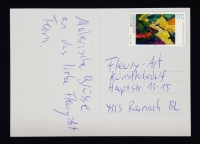 Malerische Grüsse
an das liebe Fleury Art
Team.
Fleury-Art
Künstlerbedarf
Hauptstr. 13-15
4153 Reinach BL